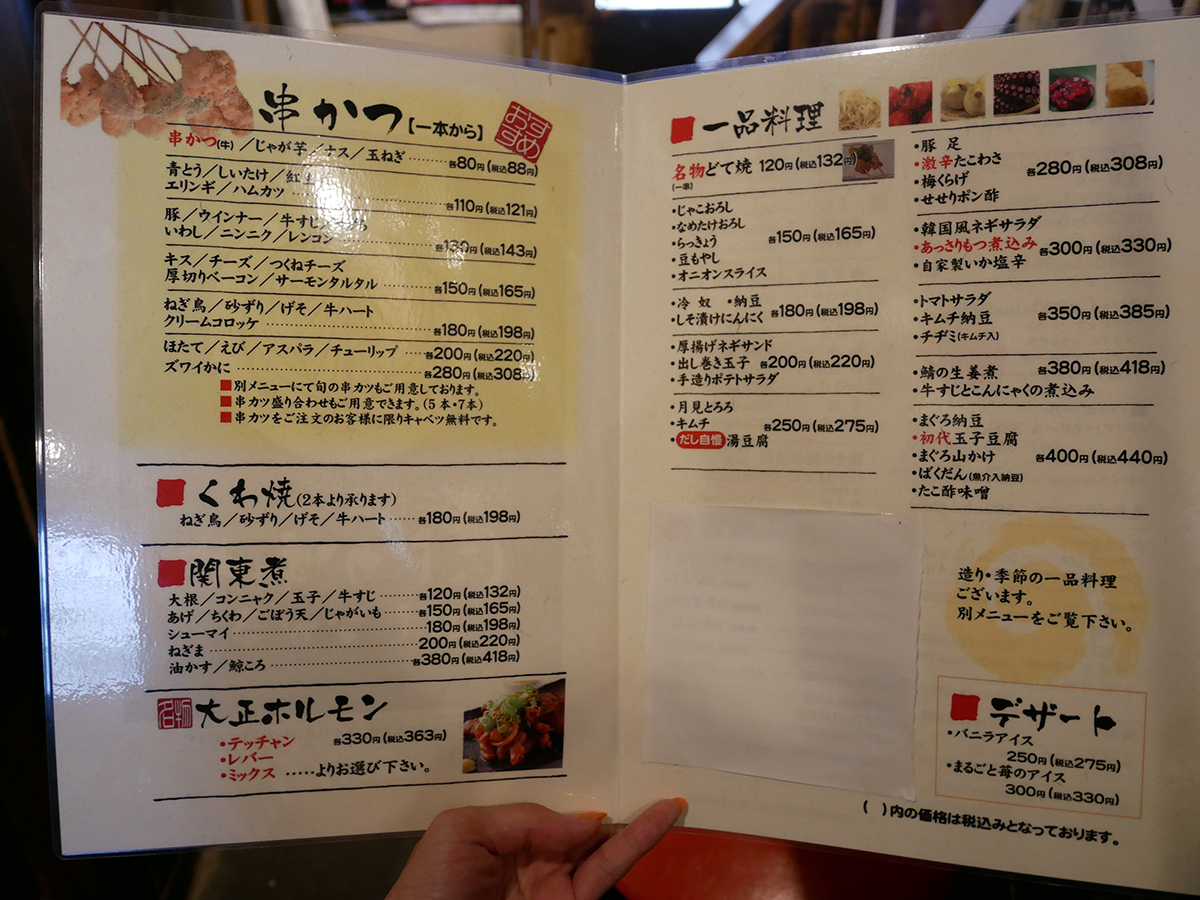 串かつ【一本から】
おすすめ
串かつ(牛)／じゃが芋／ナス／玉ねぎ……各80円(税込88円)
青とう／しいたけ／紅
エリンギ／ハムカツ……各110円(税込121円)
豚／ウインナー／牛すじ／
いわし／ニンニク／レンコン……各130円(税込143円)
キス／チーズ／つくねチーズ
厚切りベーコン／サーモンタルタル……各150円(税込165円)
ねぎ鳥／砂ずり／げそ／牛ハート
クリームコロッケ……各180円(税込198円)
ほたて／えび／アスパラ／チューリップ……各200円(税込220円)
ズワイかに……各280円(税込308円)
■別メニューにて旬の串カツもご用意しております。
■串カツ盛り合わせもご用意できます。(5本・7本)
■串カツをご注文のお客様に限りキャベツ無料です。
■くわ焼(2本より承ります)
ねぎ鳥／砂ずり／げそ／牛ハート……各180円(税込198円)
■関東煮
大根／コンニャク／玉子／牛すじ……各120円(税込132円)
あげ／ちくわ／ごぼう天／じゃがいも……各150円(税込165円)
シューマイ……180円(税込198円)
ねぎま……200円(税込220円)
油かす／鯨ころ……各380円(税込418円)
名物 大正ホルモン
・テッチャン 各330円(税込363円)
・レバー
・ミックス ……よりお選び下さい。
■一品料理
名物どて焼 120円(税込132円)
(一串)
・じゃこおろし
・なめたけおろし
・らっきょう 各150円(税込165円)
・豆もやし
・オニオンスライス
・冷奴 ・納豆
・しそ漬けにんにく 各180円(税込198円)
・厚揚げネギサンド
・出し巻き玉子 各200円(税込220円)
・手造りポテトサラダ
・月見とろろ
・キムチ 各250円(税込275円)
・だし自慢 湯豆腐
・豚足
・激辛たこわさ 各280円(税込308円)
・梅くらげ
・せせりポン酢
・韓国風ネギサラダ
・あっさりもつ煮込み 各300円(税込330円)
・自家製いか塩辛
・トマトサラダ
・キムチ納豆 各350円(税込385円)
・チヂミ(キムチ入)
・鯖の生姜煮 各380円(税込418円)
・牛すじとこんにゃくの煮込み
・まぐろ納豆
・初代玉子豆腐
・まぐろ山かけ 各400円(税込440円)
・ばくだん(魚介入納豆)
・たこ酢味噌
造り・季節の一品料理
ございます。
別メニューをご覧下さい。
■デザート
・バニラアイス
250円(税込275円)
・まるごと苺のアイス
300円(税込330円)
( )内の価格は税込みとなっております。